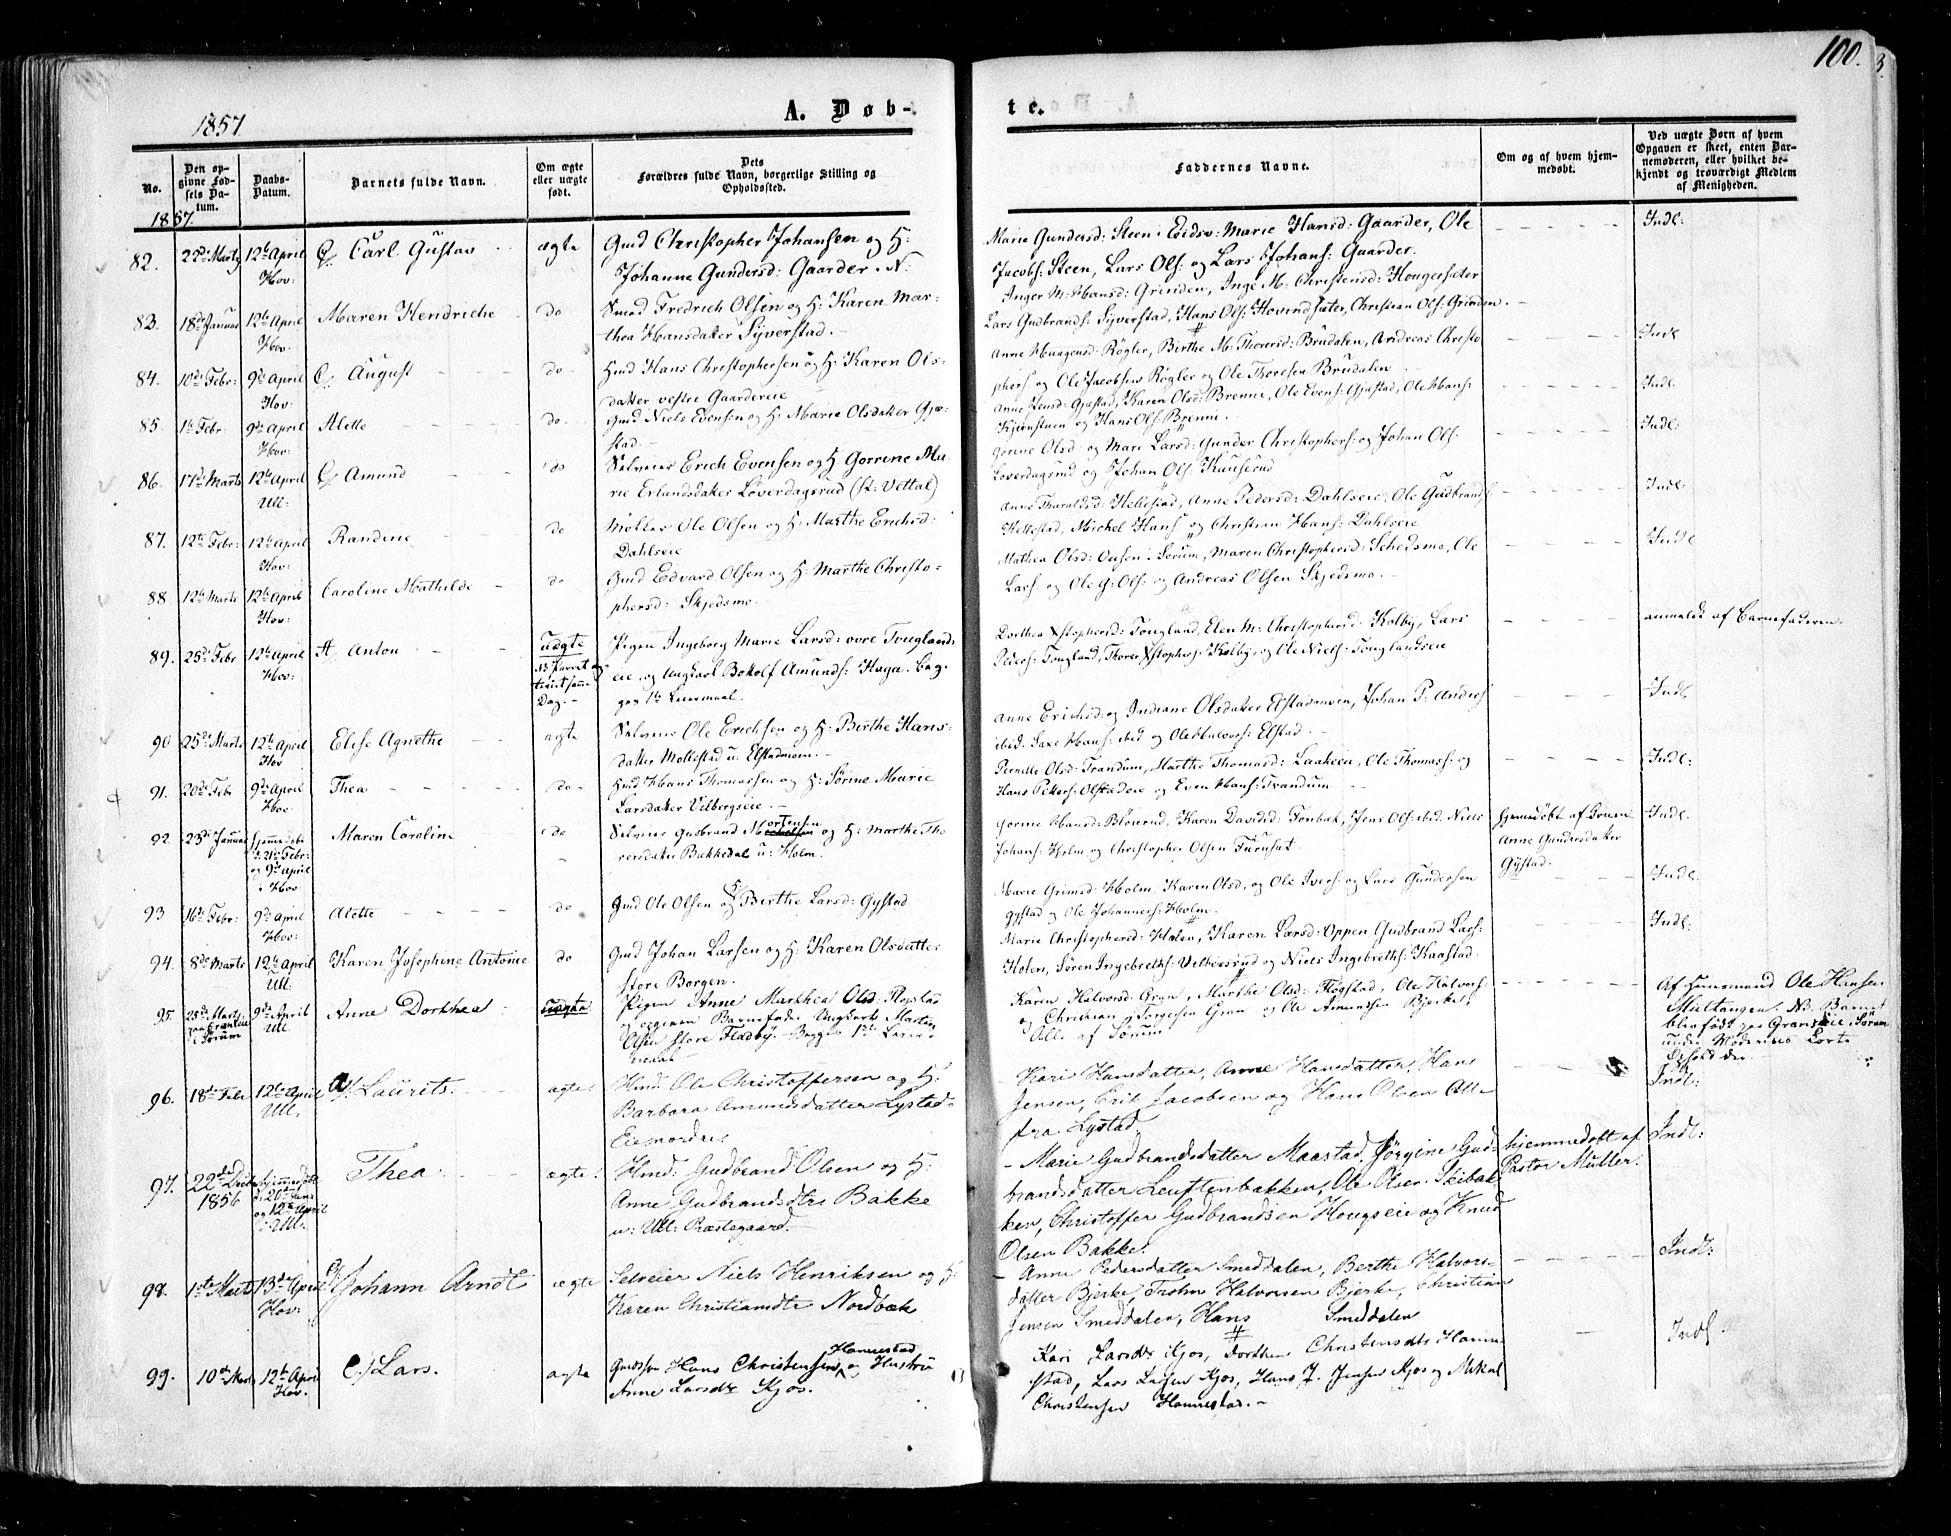 100.
1857
A. Døb-
te.
No.
Den opgivne Fødsels Datum.
Daabs-Datum.
Barnets fulde Navn.
Om ægte eller uægte født.
Dets Forældres fulde Navn, borgerlige Stilling og Opholdssted.
Faddernes Navne.
Om og af hvem hjemmedøbt.
Ved uægte Børn af hvem Opgaven er skeet, enten Barnemoderen, eller hvilket bekjendt og troværdigt Medlem af Menigheden.
1857.
82. 22de Marts 12te April Hov: Carl Gustav ægte Gmd Christopher Johansen og H:
Johanne Gundersd: Gaarder. N:
Marie Gundersd: Steen i Eidsv: Marie Hansd: Gaarder, Ole
Jacobs: Steen, Lars Ols: og Lars Johans: Gaarder.
Indl:
83. 18de Januar 12te April Hov: Maren Hendriche do Smed Fredrich Olsen og H: Karen Mar-
thea Hansdatter Syverstad.
Inger M: Hansd: Grinden, Inge M: Christensd: Hougerseter
Lars Gudbrands: Syverstad, Hans Ols: Hovind Sæter, Christian Ols: Grinden.
84. 10de Febr: 9de April Hov: August do Hmd Hans Christophersen og H: Karen Ols-
datter vestre Gaardereie
Anne Haagensd: Røgler, Birthe M: Thoresd: Brudalen, Andreas Christo
phers: og Ole Jacobsen Røgler og Ole Thoresen Brudalen
Indl
85. 1te Febr: 9de April Hov: Alette do Gmd Niels Evensen og H: Marie Olsdatter Gjæ-
stad.
Anne Jensd: Gjæstad, Karen Olsd: Brenni, Ole Evens: Gjæstad, Ole Hans:
Kjærnstuen og Hans Ols: Brenni.
Indl
86. 17de Marts 12te April Ull: Amund do Selveier Erich Evensen og H Gorrine Ma
rie Erlandsdatter Løverdagsrud (st: Vettal)
Gorine Olsd og Mari Larsd: Gunder Christophers: og Johan Ols:
Løverdagsrud og Johan Ols: Kauserud
Indl:
87. 12te Febr: 12te April Hov: Randine do Møller Ole Olsen og H: Marthe Erichsd:
Dahlseie
Anne Tharaldsd: Hellestad, Anne Pedersd: Dahlseie, Ole Gudbrands
Hellestad, Mickel Hans: og Christian Hans: Dahlseie
Indl:
88 12te Marts 12te April Hov: Caroline Mathilde do Gmd Edvard Olsen og H: Marthe Christo-
phersd: Skjedsmo.
Mathea Olsd: Sørum, Maren Christophersd: Schedsmo, Ole
Lars: og Ole G: Ols: og Andreas Olsen Skjedsmo.
Indl
89. 25de Febr 12te April Hov: Anton uægte
Dag.
Pigen Ingeborg Marie Larsd: øvre Tougland-
eie og Ungkarl Botolf Amunds: Haga. Beg-
ges 1te Leiermaal.
Dorthea Xstophersd: Tougland, Elen M: Christophersd: Kolby, Lars
Peders: Tougland, Thorer Xstophers: Kolby, og Ole Niels: Touglandseie
anmeldt af Barnefaderen.
90 25de Marts 12te April Hov Elise Agnethe ægte Selveier Ole Erichsen og H: Birthe Hans-
datter Mollestad u: Elstadmoen.
Anne Erichsd: og Indiane Olsdatter Elstadmoen, Johan P: Anders
ibid. Hans: ibid og Ole Halvors: Elstad.
Indl
91. 20de Febr 9de April Hov: Thea do Hmd Hans Thomassen og H: Sørine Marie
Larsdatter Vilbergseie.
Pernille Olsd: Trandum, Marthe Thomasd: Laakeeie, Ole Thomass: og
Hans Petters: Olstadeie og Even Hans: Trandum
Indl:
92. 23de Januar hjemmedøbt d: 21de Febr: og 9de April i Hov Maren Caroline do Selveier Gudbrand Mortensen og H: Marthe Tho
resdatter Bakkedal u: Holm.
Gorine Hansd: Blønrud, Karen Davidsd: Tonbak, Jens Ols: ibid. Niels
Johans: Holm og Christopher Olsen Furuset.
hjemmedøbt af
Anne Gundersdatter
Gystad.
Indl:
93 16de Febr: 9de April Hov: Alette do Gmd Ole Olsen og H: Birthe Larsd: Gystad
Marie Grimsd: Holm, Karen Olsd, og Ole Ivers: og Lars Gundersen
Gystad og Ole Johanness: Holm.
Indl:
94. 8de Marts 12te April Ull: Karen Josephine Antonie do Gmd Johan Larsen og H: Karen Olsdatte-
store Borgen.
Marie Christophersd: Holen, Karen Larsd: Oppen Gudbrand Lars:
Holen, Søren Ingebreths: Vilbergsrud og Niels Ingebreths: Kaastad.
Indl:
95. 25de Marts paa Graneeie i Sørum 9de April Ull Anne Dorthea uægte Pigen Anne Marthea Olsd:
og Barnefader Ungkarl Morten
Olsen store Fladby. Begges 1ste Leier-
maal
Karen Halvorsd: Gran, Marthe Olsd: Flogstad, Ole Halvors:
og Christian Torgersen Gran og Ole Amundsen Bjerke,
Alle af Sørum
Af Huusmand Ole Hansen
Multangen. NB. Barnet
blev født paa Graneeie i Sørum
under Moderens korte
Ophold der.
96. 18de Febr 12te April Ull. Laurits. ægte: Hmd. Ole Christoffersen og H:
Barbara Amundsdatter Lystad-
Eie nordre
Kari Hansdatter, Anne Hansdatter, Hans
Jensen, Erik Jacobsen og Hans Olsen Alle
fra Lystad
Indl:
97. 22de Decbr 1856 hjemmedøbt d. 26de Janr og 12te April i Ull. Thea ægte: Hmd: Gudbrand Olsen og H:
Anne Gudbrandsdtr Bakke
u: Ull: Præstegaard.
- Marie Gudbrandsdatter Maastad, Jørgine Gud-
brandsdatter Leuftenbakken, Ole Olsen Skibak-
ken, Christoffer Gudbrandsen Hougseie og Knud
Olsen Bakke.
hjemmedøbt af
Pastor Müller.
Indl:
98. 1ste Marts 13de April Hov: Johann Arndt ægte Selveier Niels Henriksen og H:
Karen Christiansdtr Nordbæk
- Anne Pedersdatter Smeddalen, Berthe Halvors-
datter Bjerke, Trohn Halvorsen Bjerke, Christian
Jensen Smeddalen, Hans Smeddalen
Indl:
99. 10de Marts 12te April Hov. Lars. ægte Gaardsm Hans Christensen Hannestad og Hustru
Anne Larsdtr Kjos.
Kari Larsdtr Kjos, Dorthea Christensdtr Hanne-
stad, Lars Larsen Kjos, Hans J. Jensen Kjos og Mikal
Christensen Hannestad.
Indl.